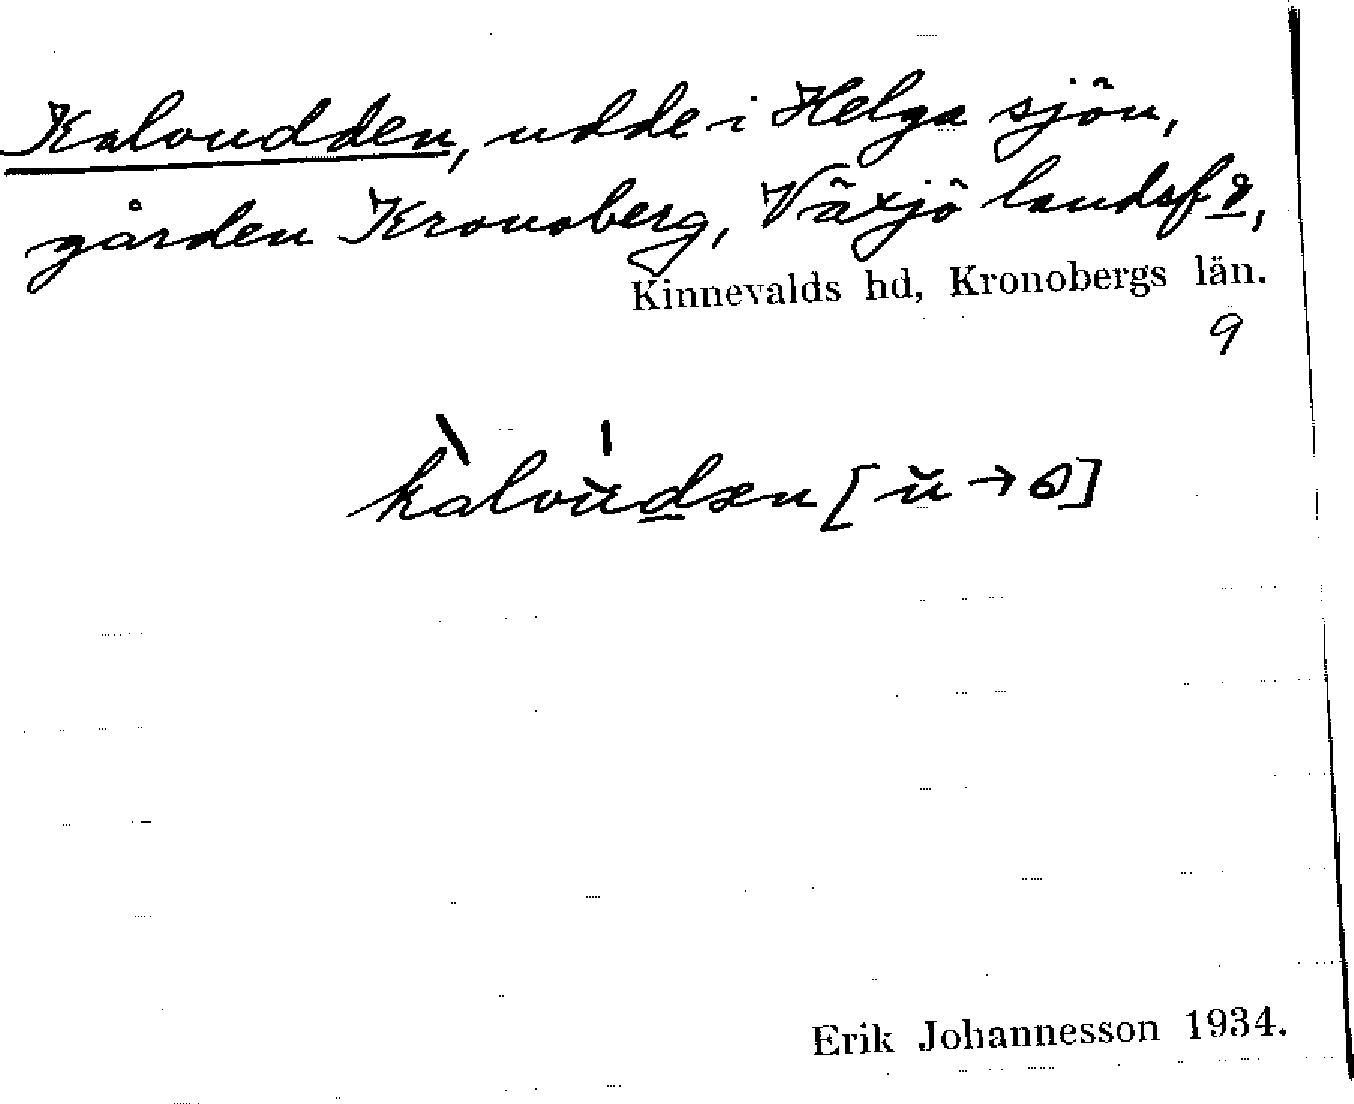 Kalvudden, udde i Helga sjön,
gården Kronoberg, Växjö landsfg,
Kinnevalds hd, Kronobergs län.
9
kalvŭdæn [ŭ→ɷ]
Erik Johannesson 1934.